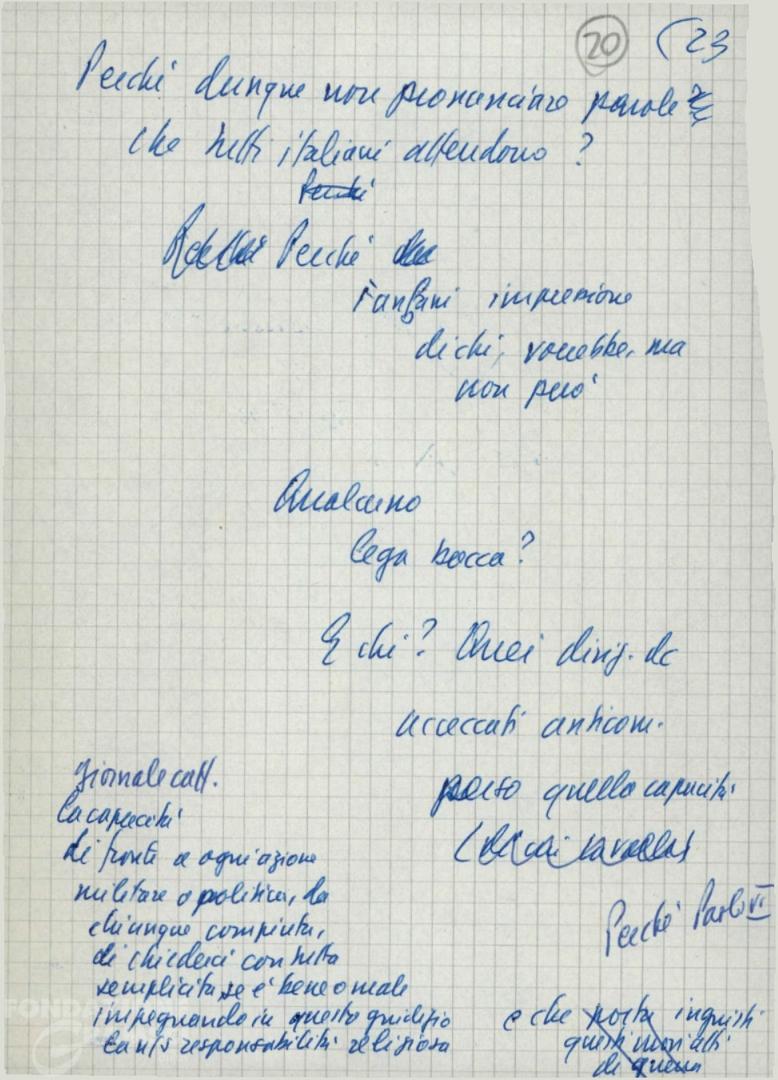 20 (23
Perché dunque non pronunciare parole
che tutti italiani attendono?
Perché
Perché
Fanfani impressione
di chi, vorrebbe, ma
non può
Qualcuno
lega bocca?
E chi? Quei dirig. dc
acceccati anticom.
perso quella capacità
Giornale catt.
la capacità
di fronte a ogni azione
militare o politica, da
chiunque compiuta,
di chiederci con tutta
semplicità, se è bene o male
impegnando in questo giudizio
tanta responsabilità religiosa
Perché Paolo VI
e che porta ingiusti
questi
di guerra
FOND